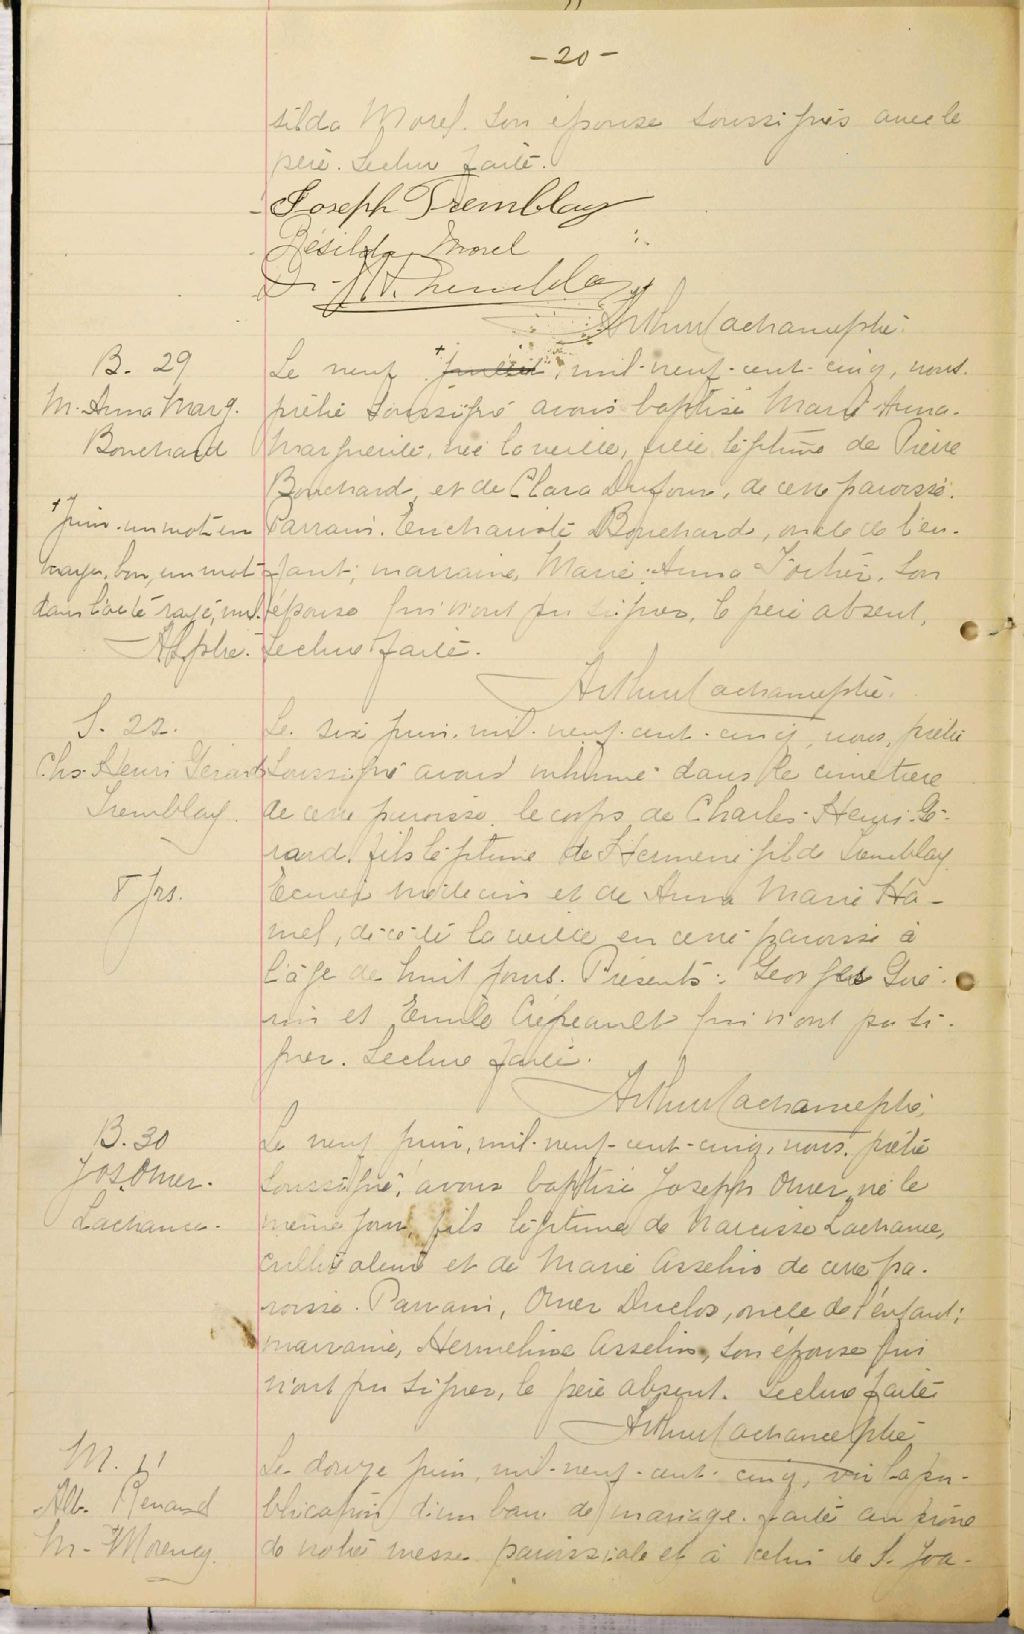 - 20 -
silda Morel. son épouse soussignés avec le
père. Lecture faite.
Joseph Tremblay
Résilda Morel
Dr Tremblay
Arthur Lachance ptre.
B. 29
M. Anna Marg.
Bouchard
+ Juin. un mot en
marge, bon, un mot
dans l'acte rayé, nul.
A L ptre.
Le neuf + juillet, mil-neuf-cent-cinq, nous.
prêtre soussigné avons baptisé Marie-Anna-
Marguerite, née la veille, fille légitime de Pierre
Bouchard, et de Clara Dufour, de cette paroisse.
Parrain. Euchariste Bouchard, oncle de l'en-
fant; marraine, Marie-Anna Fortier, son
épouse qui n'ont pu signer, le père absent.
Lecture faite.
Arthur Lachance ptre.
S. 22.
Chs. Henri Gérard
Tremblay
8 jrs.
Le six juin, mil-neuf-cent-cinq, nous, prêtre
soussigné avons inhumé dans le cimetière
de cette paroisse, le corps de Charles-Henri-Gé-
rard, fils légitime de Herménégilde Tremblay
Ecuier médecin et de Anna Marie Ha-
mel, décédé la veille en cette paroisse à
l'âge de huit jours. Présents: Georges Gué-
rin et Emile Crépeault qui n'ont pu si-
gner. Lecture faite.
Arthur Lachance ptre.
B. 30
Jos. Omer.
Lachance.
Le neuf juin, mil-neuf-cent-cinq, nous, prêtre
soussigné, avons baptisé Joseph Omer, né le
même jour, fils légitime de Narcisse Lachance,
cultivateur et de Marie Asselin de cette pa-
roisse. Parrain, Omer Duclos, oncle de l'enfant;
marraine, Hermeline Asselin, son épouse qui
n'ont pu signer, le père absent. Lecture faite
Arthur Lachance ptre
M. 11
Alb. Renaud
M. Morency.
Le douze juin, mil-neuf-cent-cinq, vu la pu-
blication d'un ban de mariage, faite au prône
de notre messe paroissiale et à celui de S. Joa-